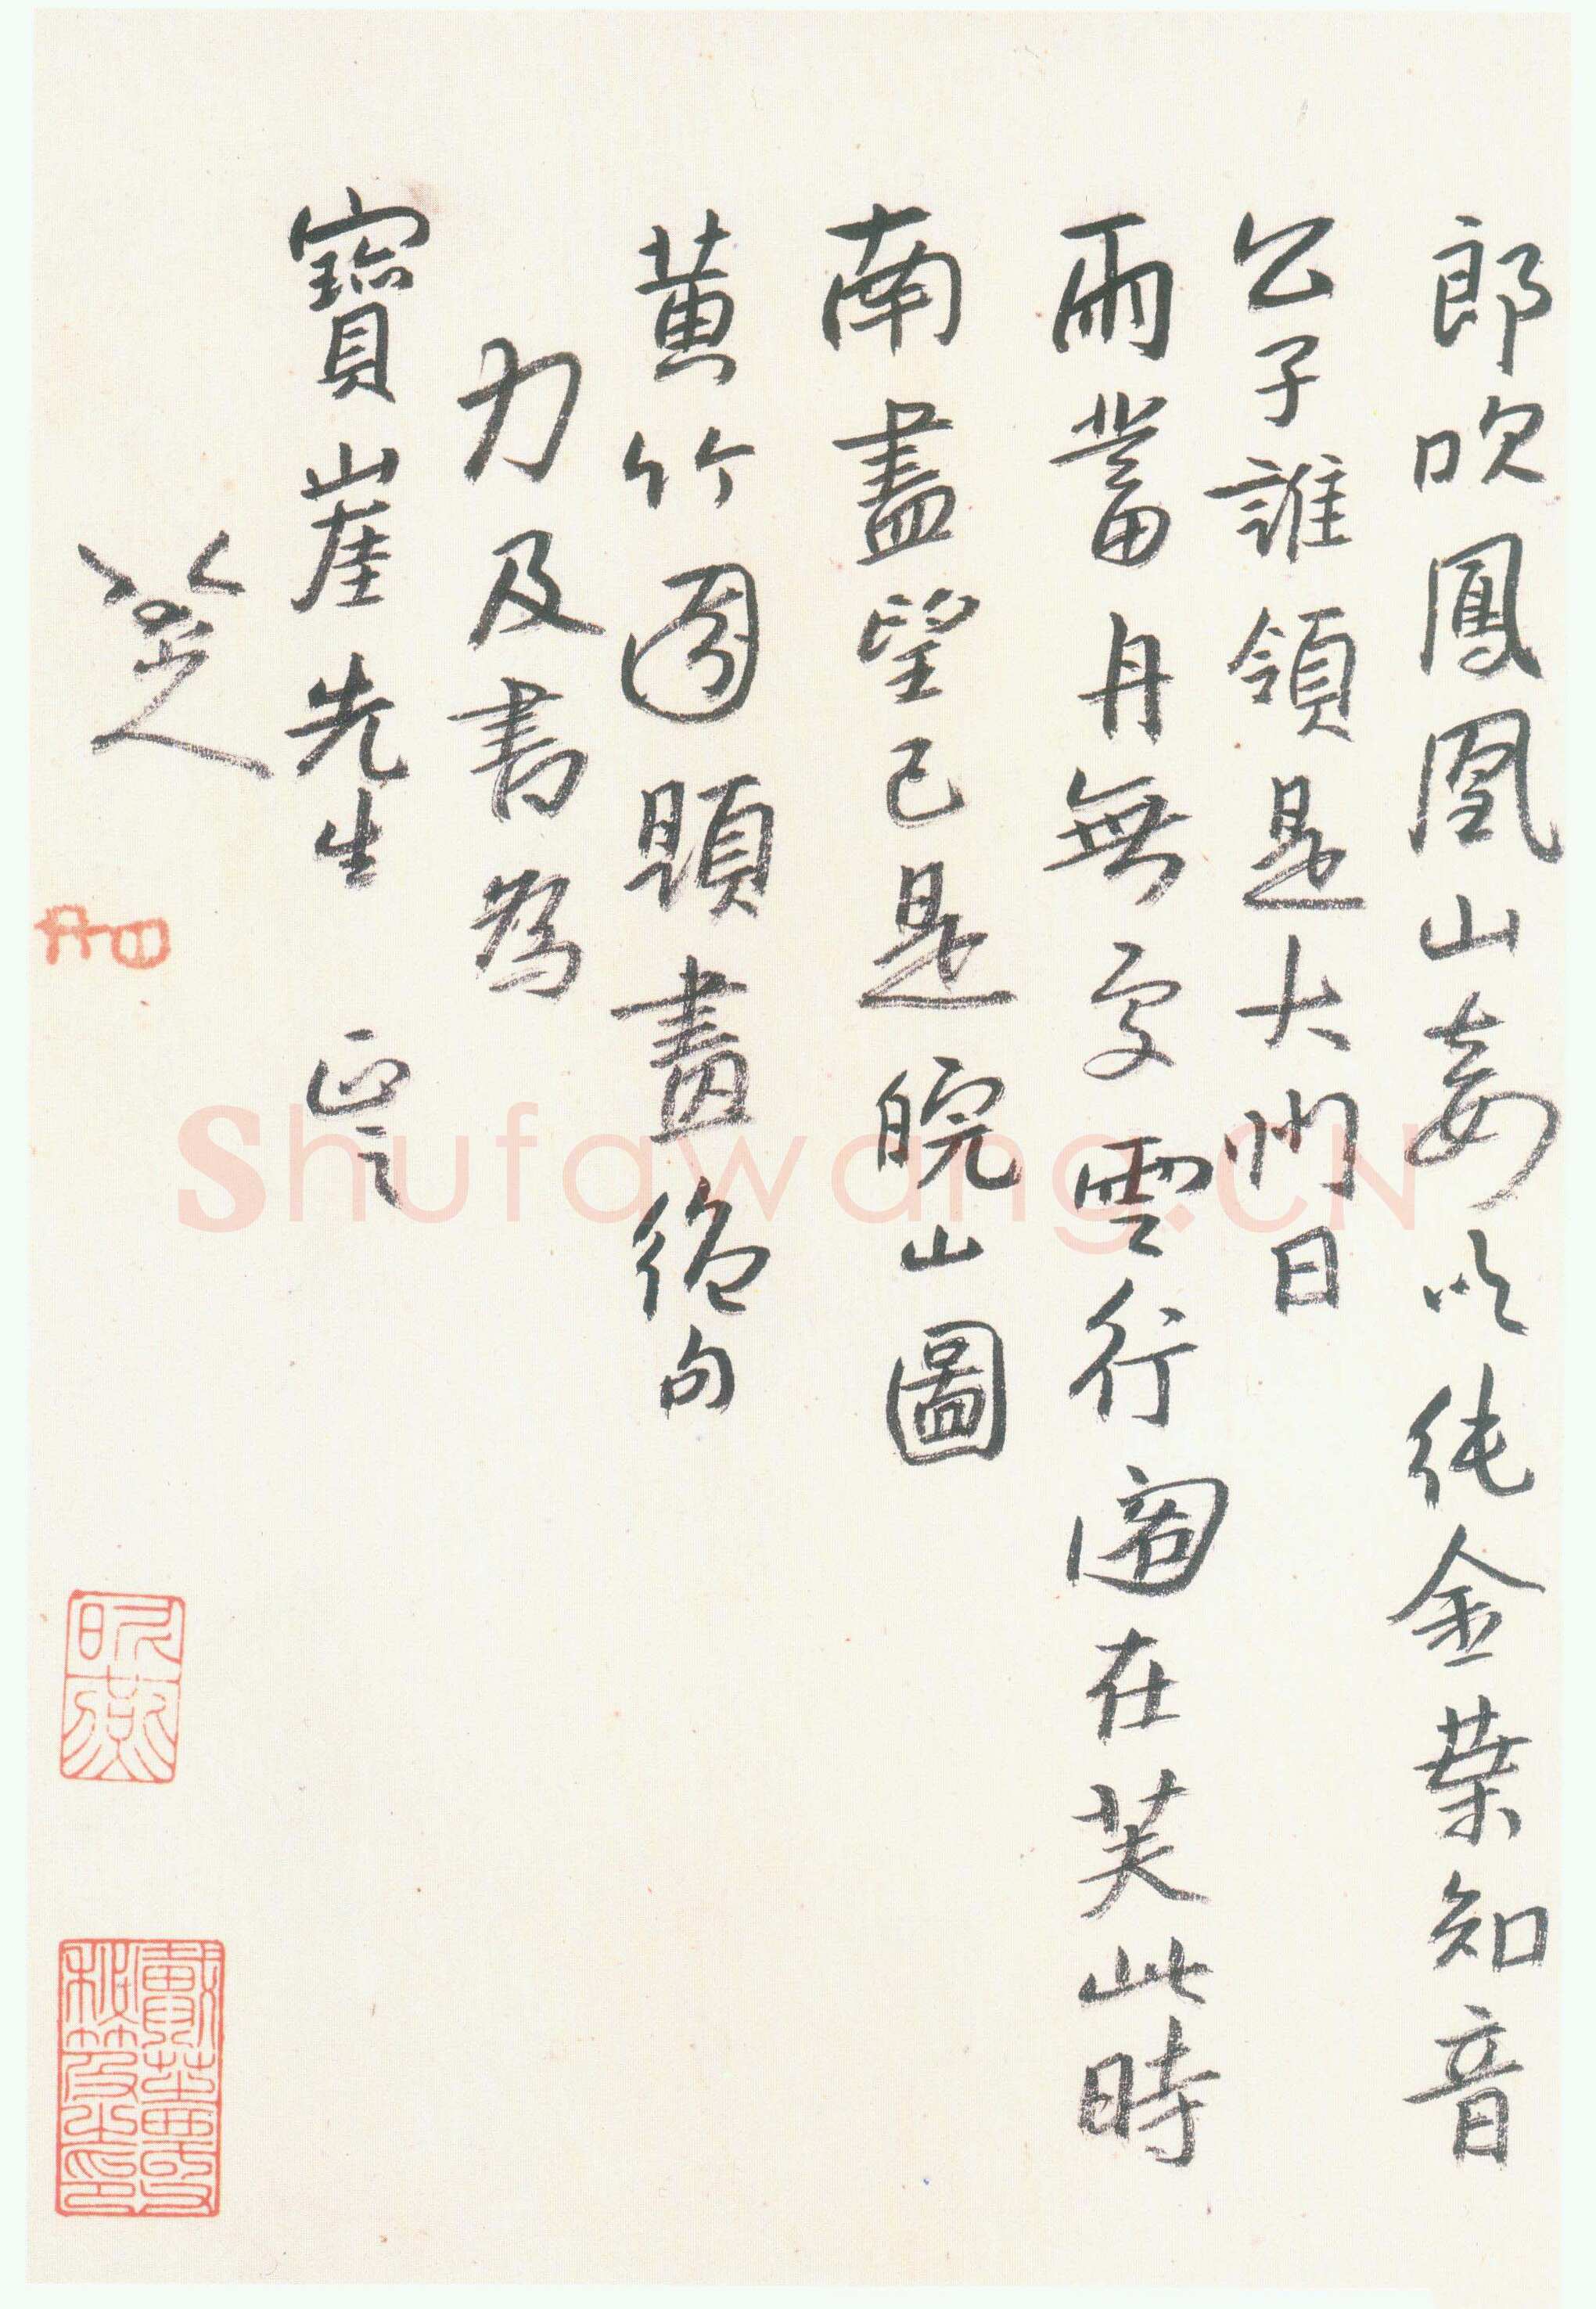 郎吹鳳凰山妾以純金葉知音
公子誰領是大州日
雨蓄舟無字雲行閣在芙此時
南盡望已是皖山圖
黄竹園題畫絕句
力及書為
寶崖先生 正之
八大山人
Shufawang.CN